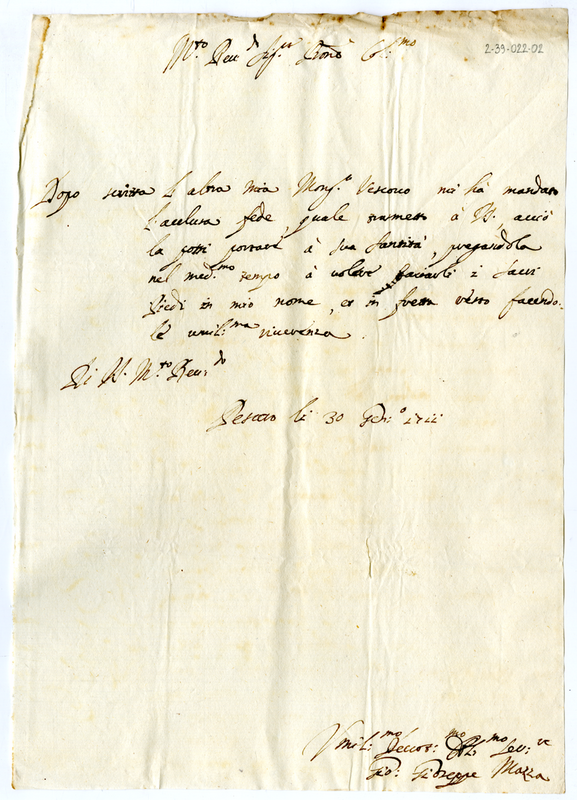 M.to Reu.do Sig.r Pron Col.mo
2-39-022-02
Dopo scritta l'altra mia Mons.r Vescouo mi hà mandato
l'acclusa fede, quale trametto à V., acciò
la possi portare à Sua Santità, pregandola
nel med.mo tempo à volere bacciarli i sacri
Piedi in mio nome, et in fretta resto facendo-
le umil.ma riuerenza.
Di V. M.to Reu.do
Pesaro li 30 Gen.o 1711
Vmil.mo Deuot.mo Obl.mo Seru.re
Gio: Giuseppe Mazza